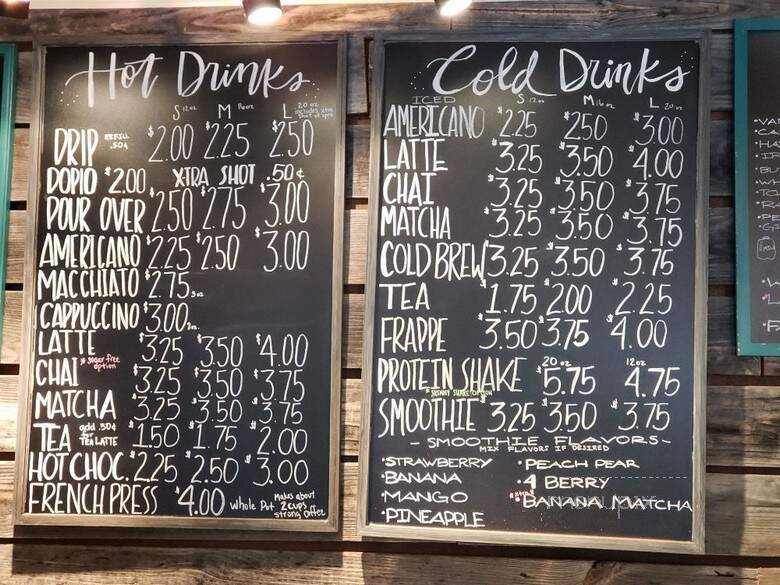 Hot Drinks
S 12oz M 16oz L 20 oz
DRIP REFILL .50¢ $2.00 $2.25 $2.50
DOPIO $2.00 XTRA SHOT .50¢
POUR OVER $2.50 $2.75 $3.00
AMERICANO $2.25 $2.50 $3.00
MACCHIATO $2.75
CAPPUCCINO $3.00
LATTE $3.25 $3.50 $4.00
* sugar free option
CHAI $3.25 $3.50 $3.75
MATCHA $3.25 $3.50 $3.75
TEA add .50¢ for TEA LATTE $1.50 $1.75 $2.00
HOT CHOC. $2.25 $2.50 $3.00
FRENCH PRESS $4.00 Whole Pot Makes about 2 cups strong coffee
Cold Drinks
ICED S 12oz M 16oz L 20oz
AMERICANO $2.25 $2.50 $3.00
LATTE $3.25 $3.50 $4.00
CHAI $3.25 $3.50 $3.75
MATCHA $3.25 $3.50 $3.75
COLD BREW $3.25 $3.50 $3.75
TEA $1.75 $2.00 $2.25
FRAPPE $3.50 $3.75 $4.00
PROTEIN SHAKE 20oz $5.75 12oz $4.75
SMOOTHIE $3.25 $3.50 $3.75
- SMOOTHIE FLAVORS -
MIX FLAVORS IF DESIRED
•STRAWBERRY •PEACH PEAR
•BANANA •4 BERRY
•MANGO •BANANA MATCHA
•PINEAPPLE